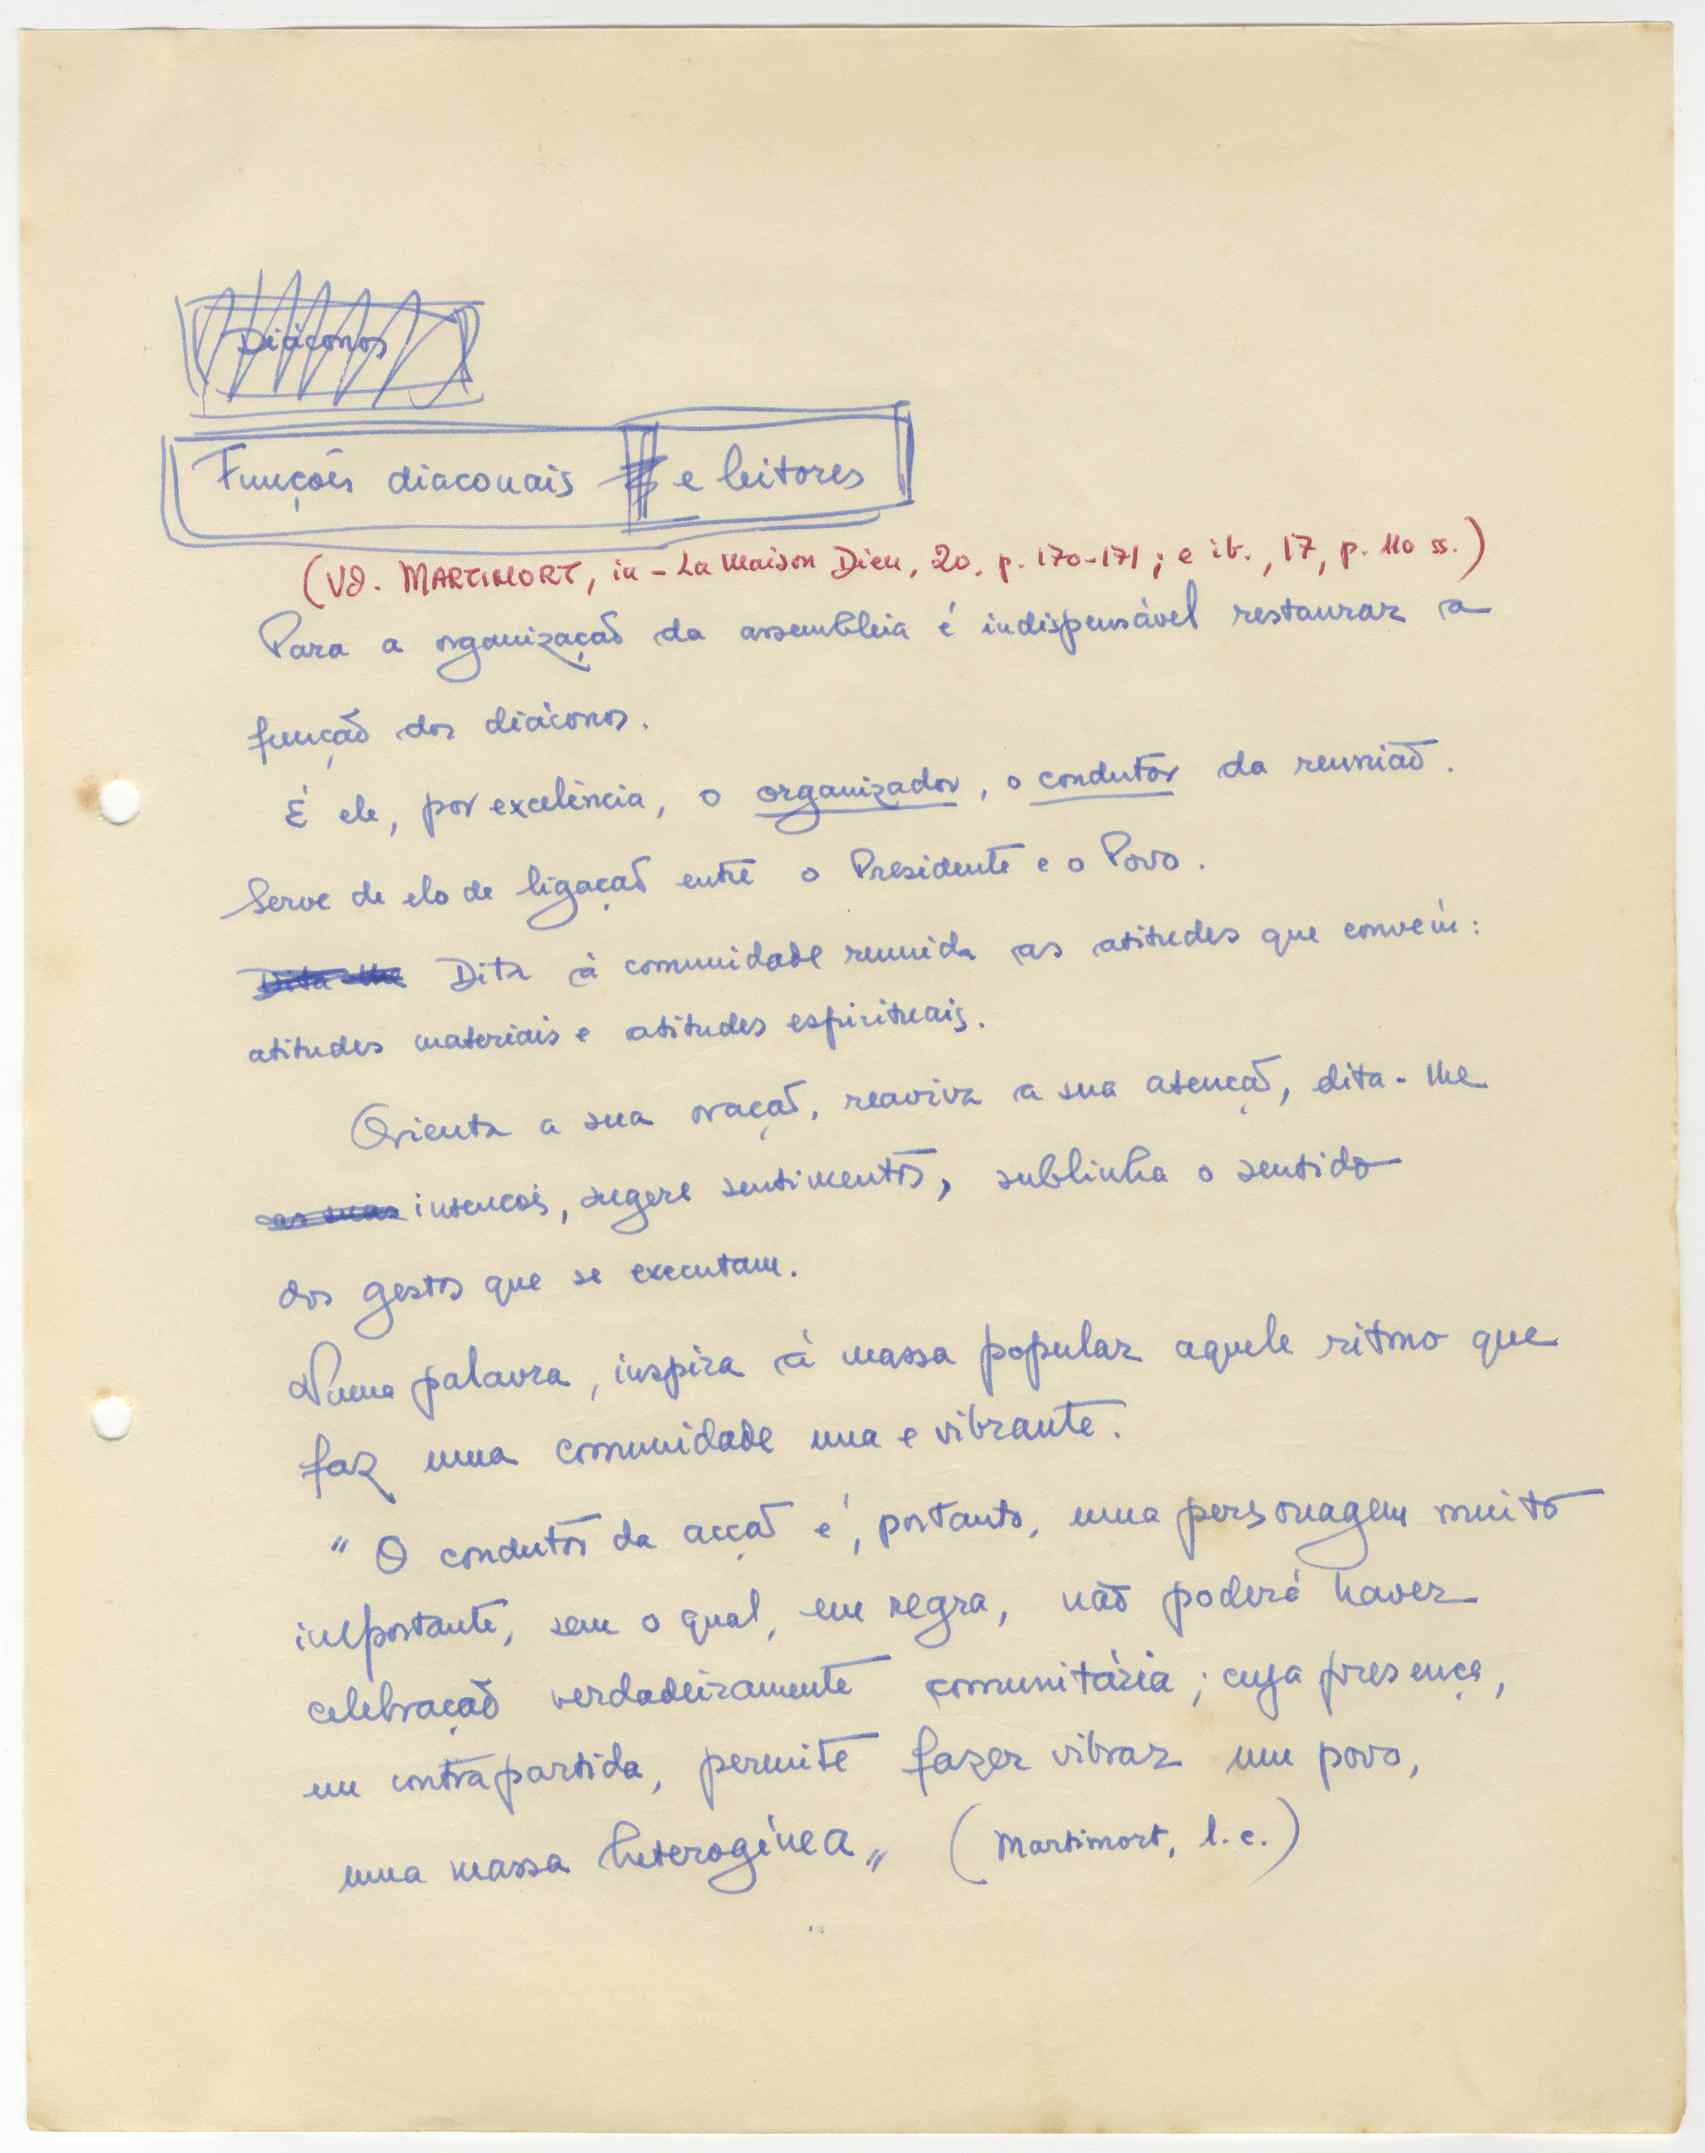 Diáconos
Funções diaconais e leitores
(Vd. MARTIMORT, in - La Maison Dieu, 20, p. 170-171; e ib., 17, p. 110 ss.)
Para a organização da assembleia é indispensável restaurar a
função dos diáconos.
É ele, por excelência, o organizador, o condutor da reunião.
Serve de elo de ligação entre o Presidente e o Povo.
Dita-lhe Dita à comunidade reunida as atitudes que convém:
atitudes materiais e atitudes espirituais.
Orienta a sua oração, reaviva a sua atenção, dita-lhe
as suas intenções, sugere sentimentos, sublinha o sentido
dos gestos que se executam.
Numa palavra, inspira à massa popular aquele ritmo que
faz uma comunidade una e vibrante.
"O condutor da acção é, portanto, uma personagem muito
importante, sem o qual, em regra, não poderá haver
celebração verdadeiramente comunitária; cuja presença,
em contrapartida, permite fazer vibrar um povo,
uma massa heterogénea„ (Martimort, l. c.)